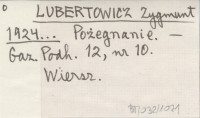 LUBERTOWICZ Zygmunt
1924... Pożegnanie. —
Gaz. Podh. 12, nr 10.
Wiersz.